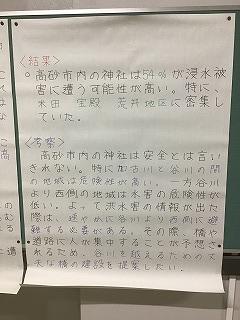 <結果>
○高砂市内の神社は54%が浸水被
害に遭う可能性が高い。特に、
米田 宝殿 荒井地区に密集し
ていた。
<考察>
高砂市内の神社は安全とは言い
きれない。特に加古川と谷川の間
の地域は危険性が高い。一方谷川
より西側の地域は水害の危険性が
低い。よって洪水害の情報が出た
際は、速やかに谷川より西側に避
難する必要がある。その際、橋や
道路に人が集中することが予想さ
れるため、谷川を越えるための
大な橋の建設を提案したい。